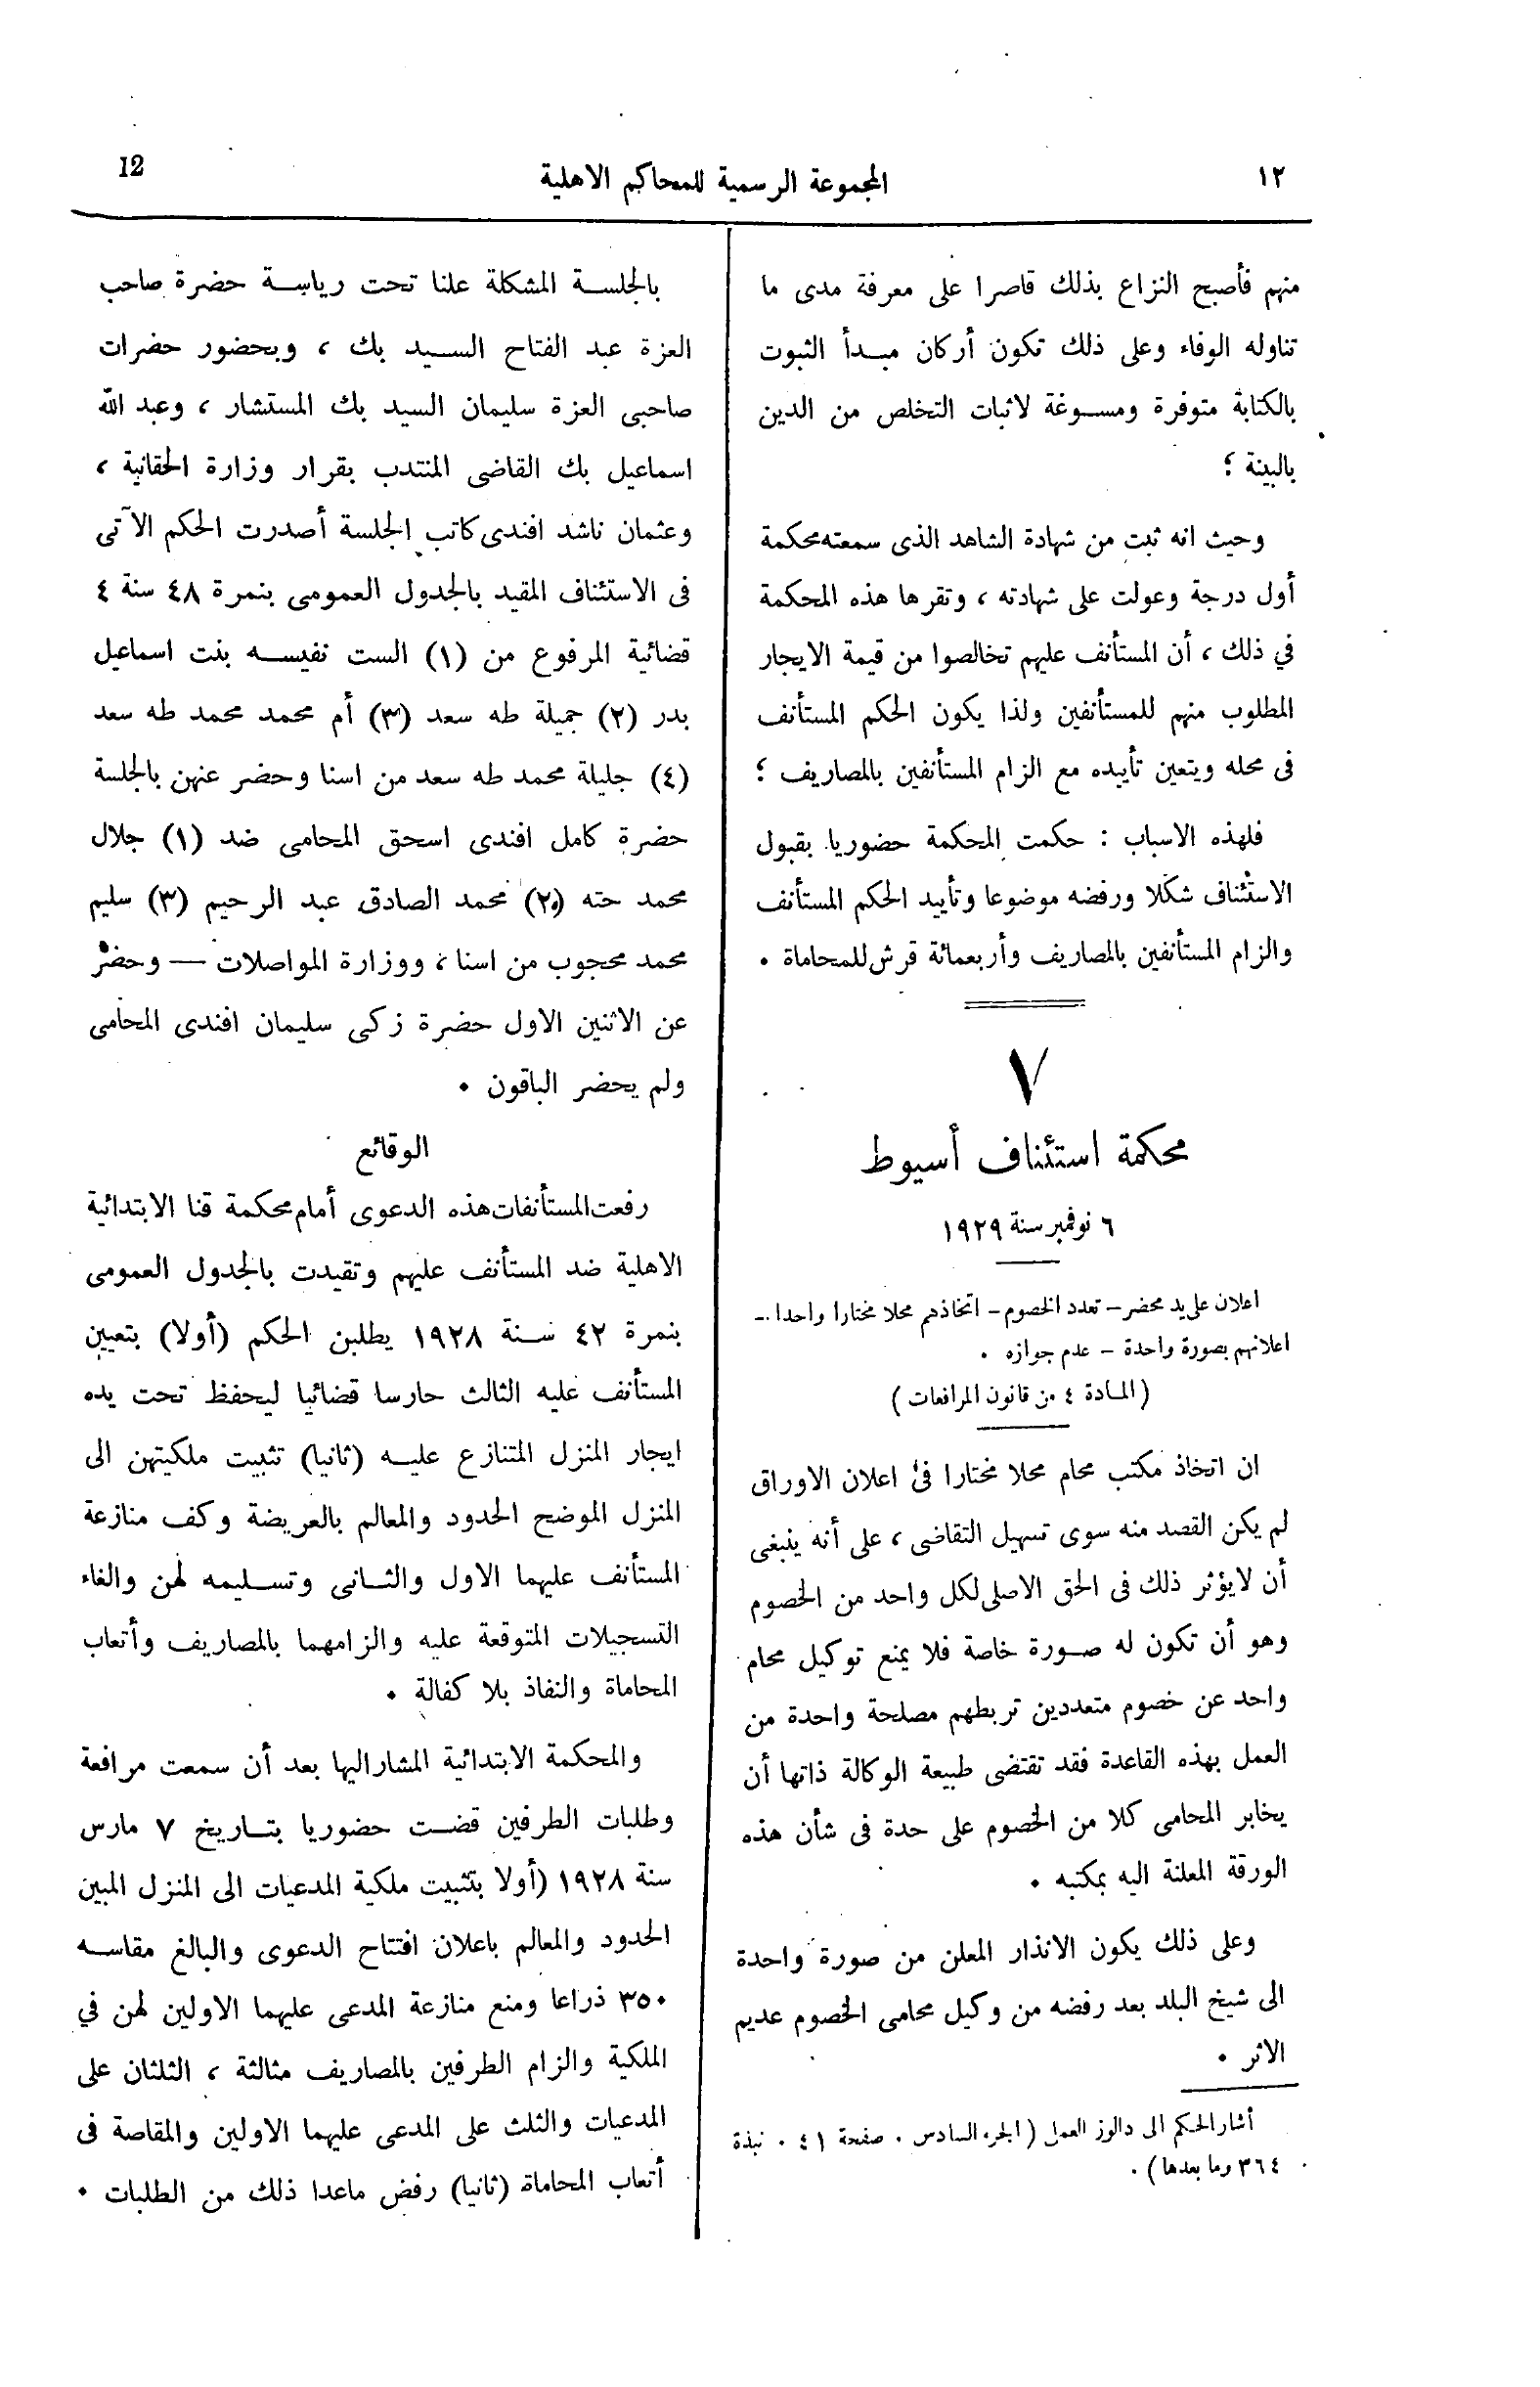 ١٢
المجموعة الرسمية للمحاكم الاهلية
12
منهم فأصبح النزاع بذلك قاصرا على معرفة مدى ما
تناوله الوفاء وعلى ذلك تكون أركان مبدأ الثبوت
بالكتابة متوفرة ومسوغة لاثبات التخلص من الدين
بالبينة ؛
وحيث انه ثبت من شهادة الشاهد الذى سمعته محكمة
أول درجة وعولت على شهادته ، وتقرها هذه المحكمة
في ذلك ، أن المستأنف عليهم تخالصوا من قيمة الايجار
المطلوب منهم للمستأنفين ولذا يكون الحكم المستأنف
فى محله ويتعين تأييده مع الزام المستأنفين بالمصاريف ؛
فلهذه الاسباب : حكمت المحكمة حضوريا بقبول
الاستئناف شكلا ورفضه موضوعا وتأييد الحكم المستأنف
والزام المستأنفين بالمصاريف وأربعمائة قرش للمحاماة .
٧
محكمة استئناف أسيوط
٦ نوفمبر سنة ١٩٢٩
اعلان على يد محضر – تعدد الخصوم – اتخاذهم محلا مختارا واحدا –
اعلانهم بصورة واحدة – عدم جوازه .
( المادة ٤ من قانون المرافعات )
ان اتخاذ مكتب محام محلا مختارا فى اعلان الاوراق
لم يكن القصد منه سوى تسهيل التقاضى ، على أنه ينبغى
أن لا يؤثر ذلك فى الحق الاصلى لكل واحد من الخصوم
وهو أن تكون له صورة خاصة فلا يمنع توكيل محام
واحد عن خصوم متعددين تربطهم مصلحة واحدة من
العمل بهذه القاعدة فقد تقتضى طبيعة الوكالة ذاتها أن
يخابر المحامى كلا من الخصوم على حدة فى شأن هذه
الورقة المعلنة اليه بمكتبه .
وعلى ذلك يكون الانذار المعلن من صورة واحدة
الى شيخ البلد بعد رفضه من وكيل محامى الخصوم عديم
الاثر .
أشار الحكم الى دالوز العمل ( الجزء السادس . صفحة ٤١ . نبذة
٣٦٤ وما بعدها ) .
بالجلسة المشكلة علنا تحت رياسة حضرة صاحب
العزة عبد الفتاح السيد بك ، وبحضور حضرات
صاحبى العزة سليمان السيد بك المستشار ، وعبد الله
اسماعيل بك القاضى المنتدب بقرار وزارة الحقانية ،
وعثمان ناشد افندى كاتب الجلسة أصدرت الحكم الآتى
فى الاستئناف المقيد بالجدول العمومى بنمرة ٤٨ سنة ٤
قضائية المرفوع من (١) الست نفيسه بنت اسماعيل
بدر (٢) جميلة طه سعد (٣) أم محمد محمد طه سعد
(٤) جليلة محمد طه سعد من اسنا وحضر عنهن بالجلسة
حضرة كامل افندى اسحق المحامى ضد (١) جلال
محمد حته (٢) محمد الصادق عبد الرحيم (٣) سليم
محمد محجوب من اسنا ، ووزارة المواصلات — وحضر
عن الاثنين الاول حضرة زكى سليمان افندى المحامى
ولم يحضر الباقون .
الوقائع
رفعت المستأنفات هذه الدعوى أمام محكمة قنا الابتدائية
الاهلية ضد المستأنف عليهم وتقيدت بالجدول العمومى
بنمرة ٤٢ سنة ١٩٢٨ يطلبن الحكم (أولا) بتعيين
المستأنف عليه الثالث حارسا قضائيا ليحفظ تحت يده
ايجار المنزل المتنازع عليه (ثانيا) تثبيت ملكيتهن الى
المنزل الموضح الحدود والمعالم بالعريضة وكف منازعة
المستأنف عليهما الاول والثانى وتسليمه لهن والغاء
التسجيلات المتوقعة عليه والزامهما بالمصاريف وأتعاب
المحاماة والنفاذ بلا كفالة .
والمحكمة الابتدائية المشار اليها بعد أن سمعت مرافعة
وطلبات الطرفين قضت حضوريا بتاريخ ٧ مارس
سنة ١٩٢٨ (أولا بتثبيت ملكية المدعيات الى المنزل المبين
الحدود والمعالم باعلان افتتاح الدعوى والبالغ مقاسه
٣٥٠ ذراعا ومنع منازعة المدعى عليهما الاولين لهن في
الملكية والزام الطرفين بالمصاريف مثالثة ، الثلثان على
المدعيات والثلث على المدعى عليهما الاولين والمقاصة فى
أتعاب المحاماة (ثانيا) رفض ماعدا ذلك من الطلبات .